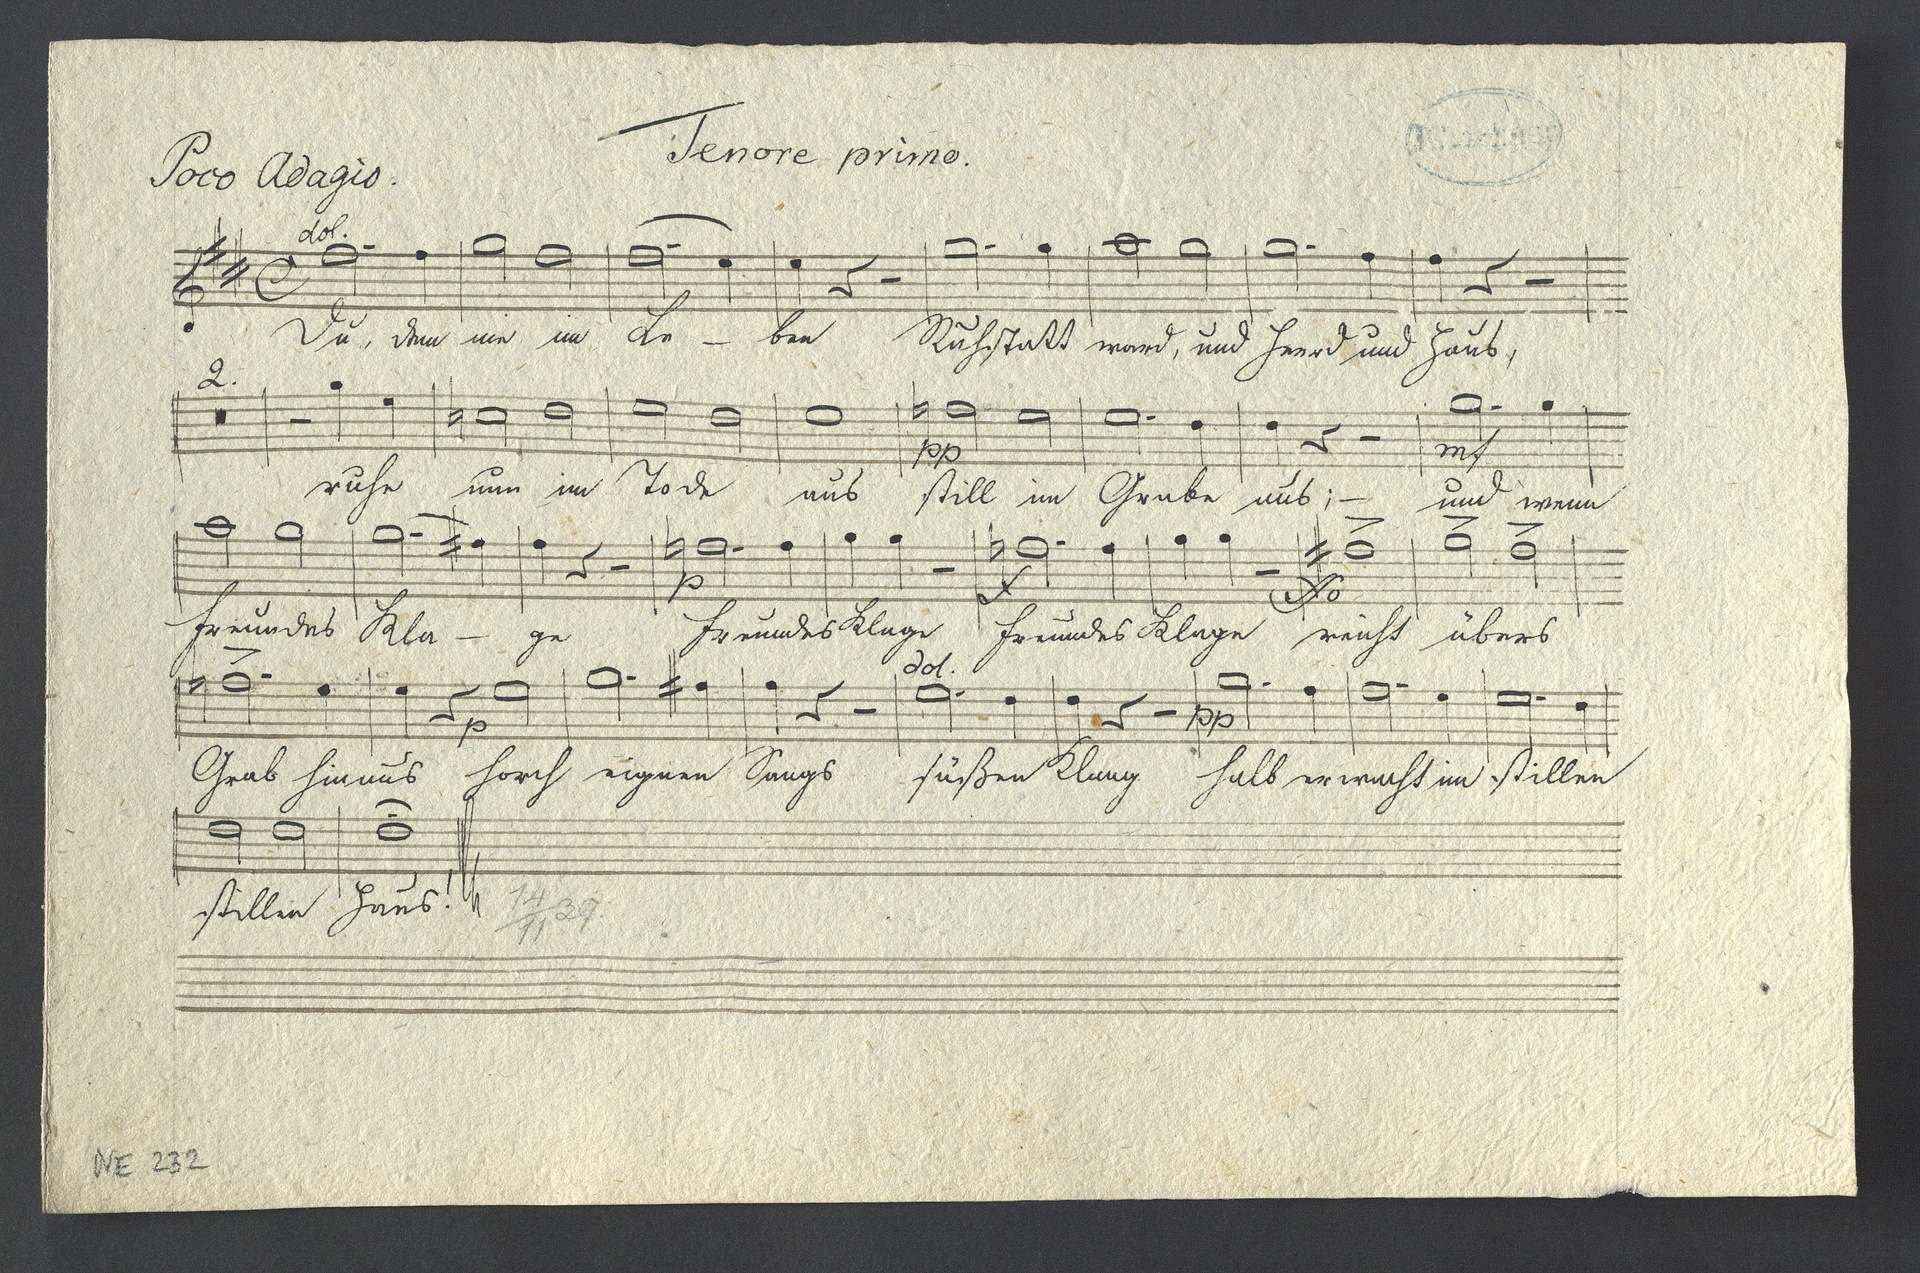 Tenore primo.
Poco Adagio.
dol.
Du, dem nie im Le – ben Ruhstatt ward, und Heerd und Haus,
2.
pp mf
ruhe nun im Tode aus still im Grabe aus; – und wenn
p f
Freundes Kla – ge Freundes Klage Freundes Klage reicht übers
dol.
p pp
Grab hinaus horch eignen Sangs süßen Klang halb erwacht im stillen
stillen Haus!
NE 232